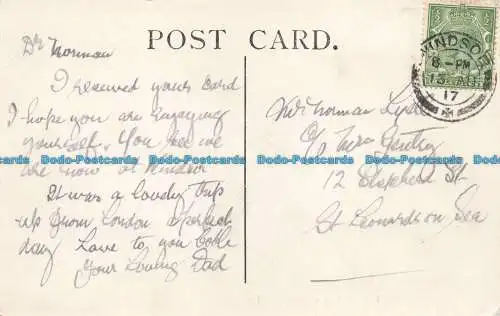 POST CARD.
Dr Norman
I received yours card
I hope you are enjoying
yourself. You see we
are now at Windsor
It was a lovely trip
up from London a perfect
day Love to you both
Your Loving Dad
WINDSOR
6 - PM
13 AU
17
Norman
C/o Mrs Gentry
12 St
St Leonards on Sea
Dodo-Postcards Dodo-Postcards Dodo-Postcards Dodo-Postcards